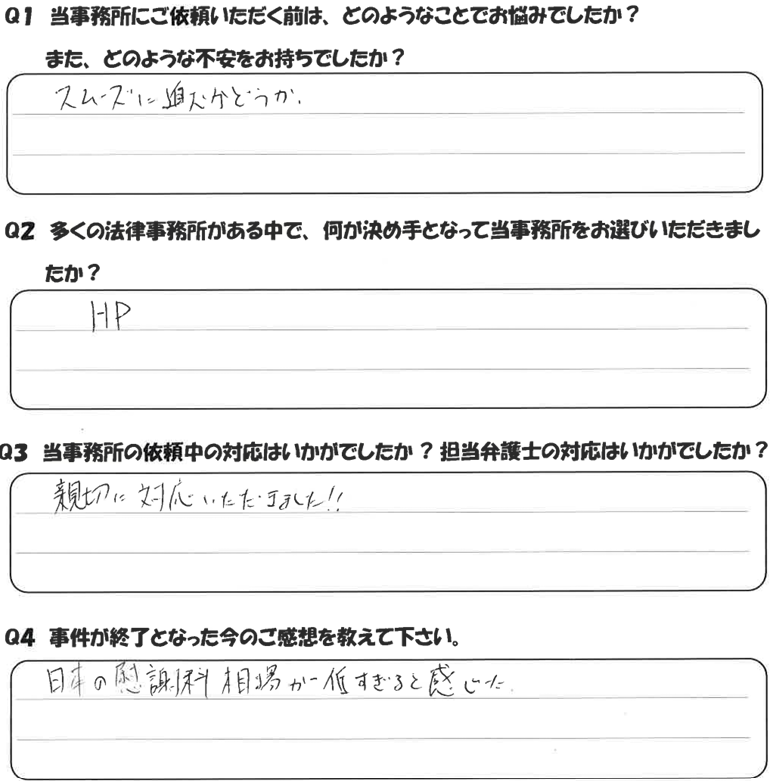 Q1 当事務所にご依頼いただく前は、どのようなことでお悩みでしたか？
また、どのような不安をお持ちでしたか？
スムーズに進むかどうか.
Q2 多くの法律事務所がある中で、何が決め手となって当事務所をお選びいただきまし
たか？
HP
Q3 当事務所の依頼中の対応はいかがでしたか？担当弁護士の対応はいかがでしたか？
親切に対応いただきました!!
Q4 事件が終了となった今のご感想を教えて下さい。
日本の慰謝料相場が低すぎると感じた.